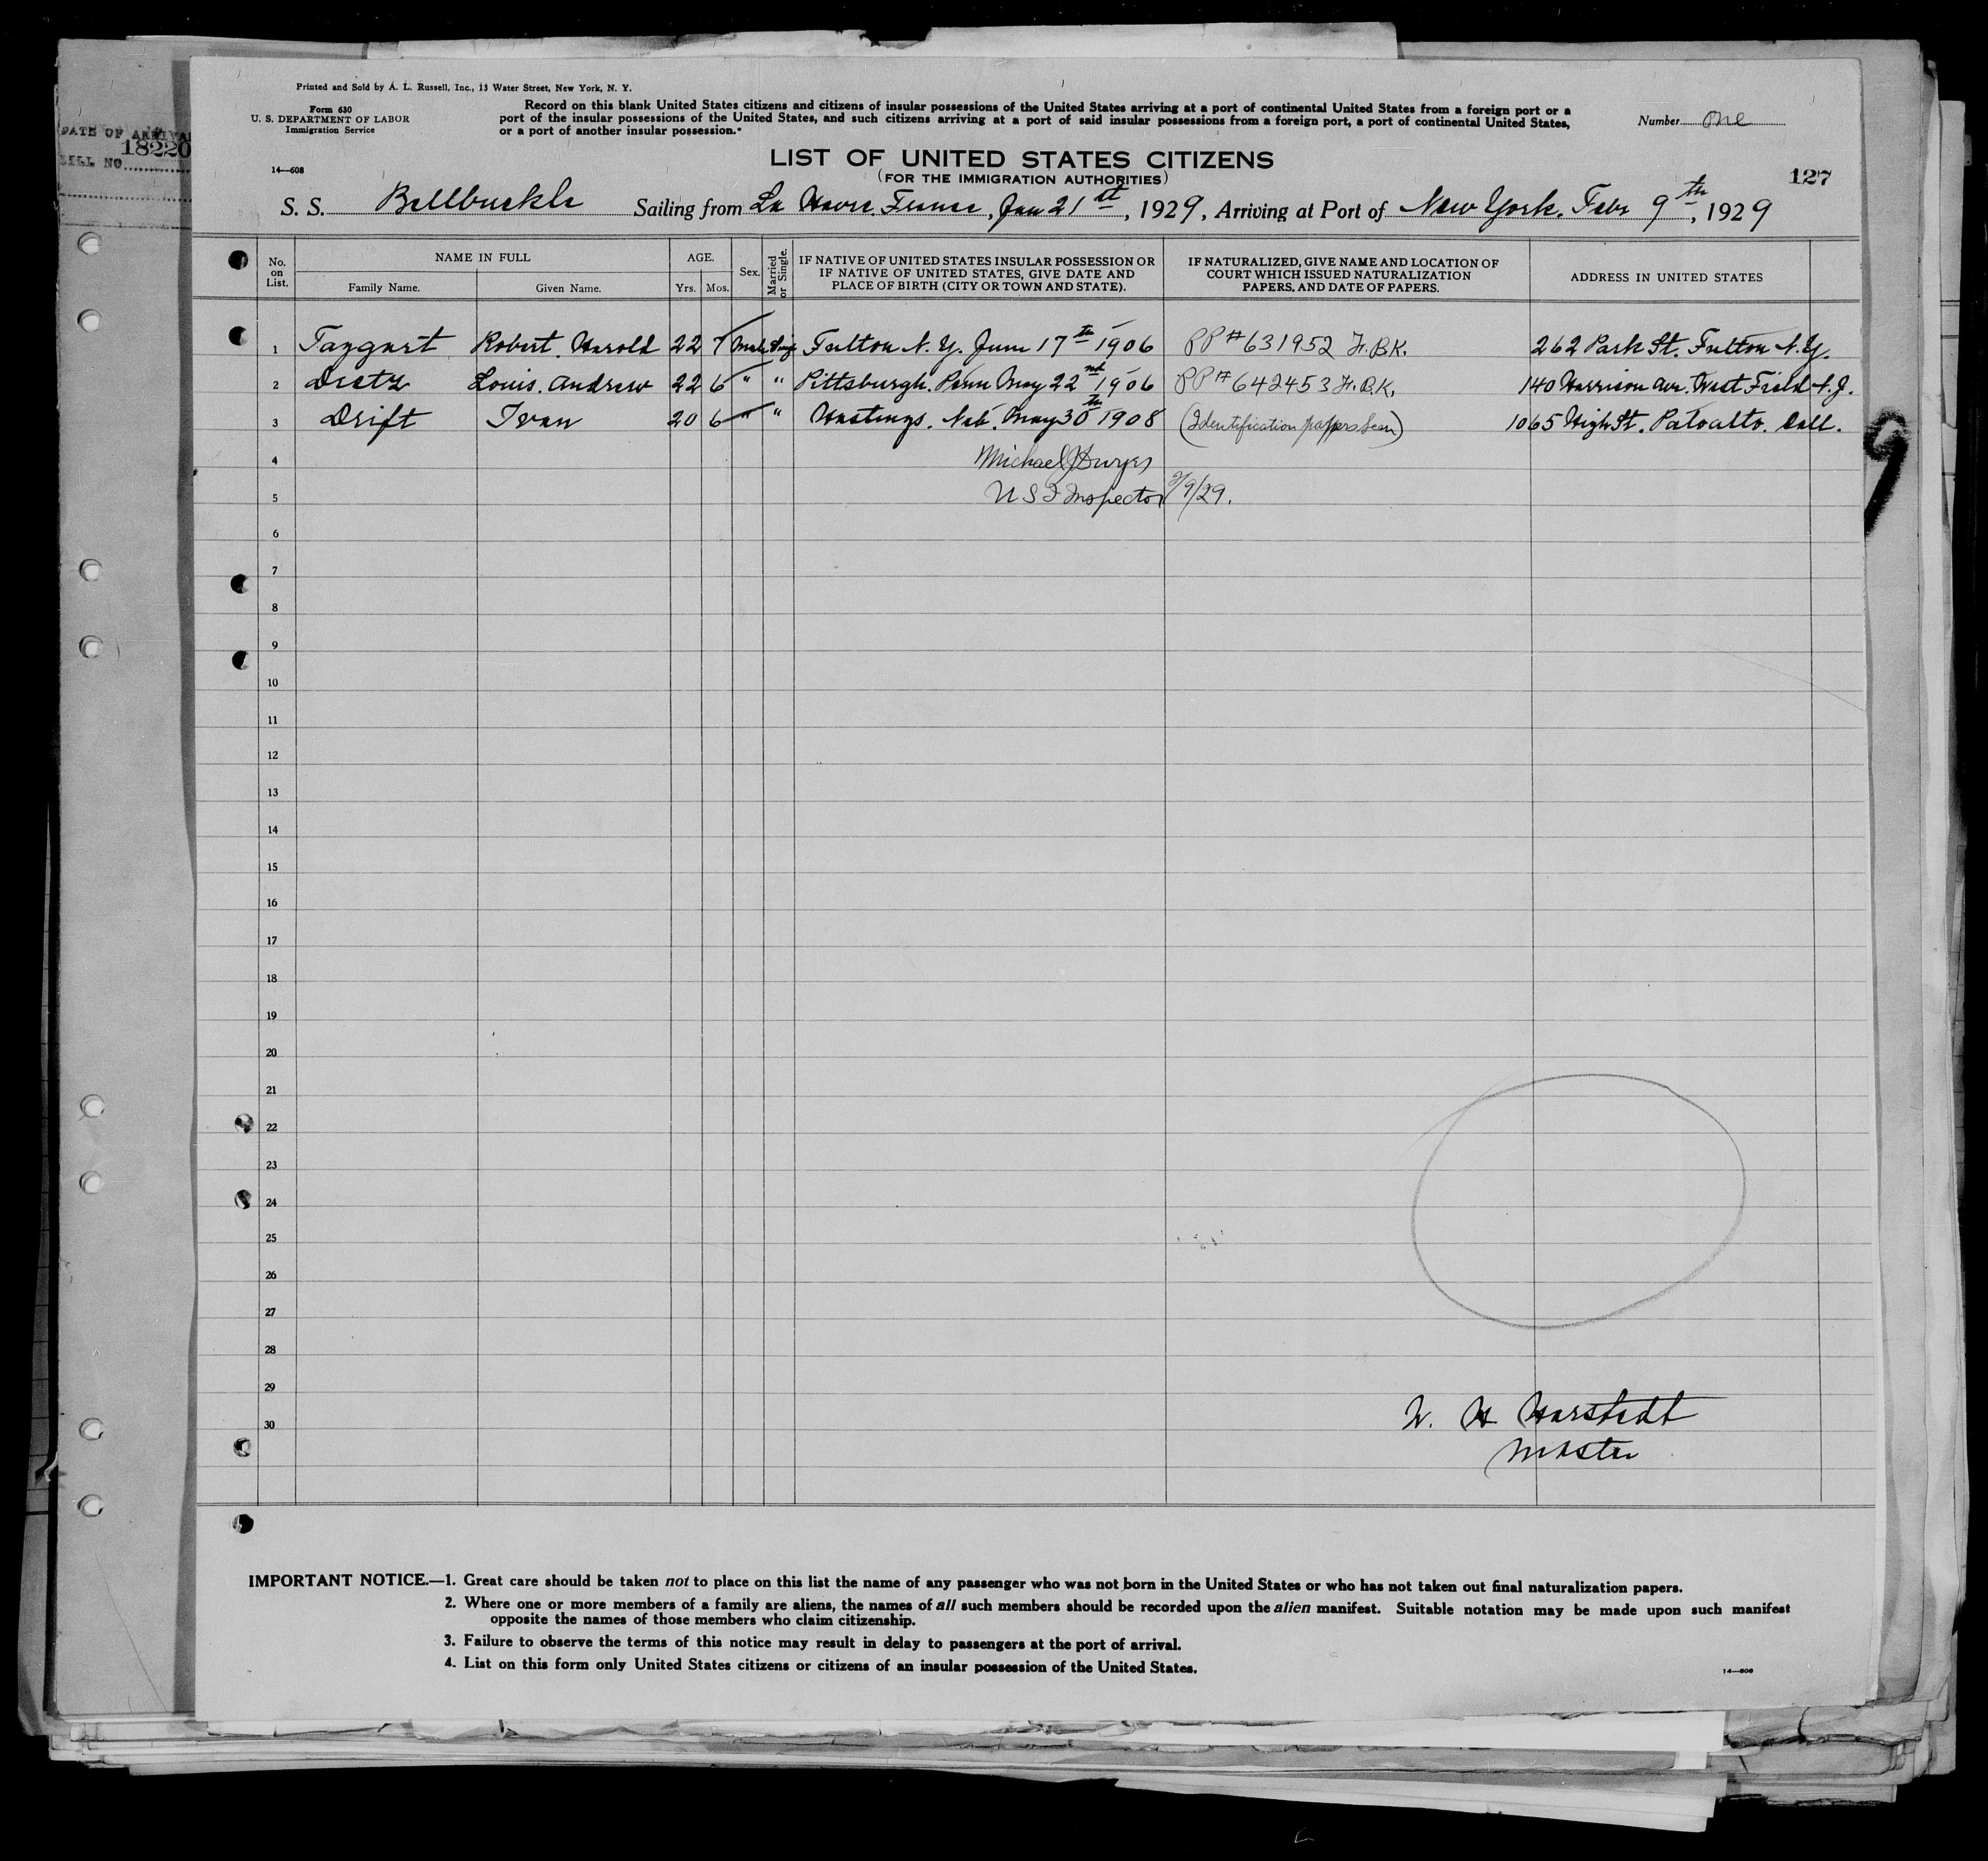 Printed and Sold by A. L. Russell, Inc., 13 Water Street, New York, N. Y.
Form 630
U. S. DEPARTMENT OF LABOR
Immigration Service
Record on this blank United States citizens and citizens of insular possessions of the United States arriving at a port of continental United States from a foreign port or a
port of the insular possessions of the United States, and such citizens arriving at a port of said insular possessions from a foreign port, a port of continental United States,
or a port of another insular possession.
Number One
DATE OF ARRIVAL
18220
BILL NO.
14—608
LIST OF UNITED STATES CITIZENS
(FOR THE IMMIGRATION AUTHORITIES)
127
S. S. Bellbuckle Sailing from La Havre France, Jan 21st, 1929, Arriving at Port of New York. Febr 9th, 1929
No. on List. NAME IN FULL AGE. Sex. Married or Single. IF NATIVE OF UNITED STATES INSULAR POSSESSION OR IF NATIVE OF UNITED STATES, GIVE DATE AND PLACE OF BIRTH (CITY OR TOWN AND STATE). IF NATURALIZED, GIVE NAME AND LOCATION OF COURT WHICH ISSUED NATURALIZATION PAPERS, AND DATE OF PAPERS. ADDRESS IN UNITED STATES
Family Name. Given Name. Yrs. Mos.
1 Taggart Robert. Harold 22 7 Male Single Fulton N. Y. June 17th 1906 PP#631952 H.B.K. 262 Park St. Fulton N.Y.
2 Dietz Louis. Andrew 22 6 " " Pittsburgh. Penn May 22nd 1906 PP#642453 H.B.K. 140 Harrison Ave. West Field N.J.
3 Drift Ivan 20 6 " " Hastings. Neb. May 30th 1908 (Identification papers seen) 1065 High St. Paloalto. Call.
4 Michael J Dwyer
5 U S I Inspector 2/9/29.
6
7
8
9
10
11
12
13
14
15
16
17
18
19
20
21
22
23
24
25
26
27
28
29
30
9
W. H Harstedt
Master
IMPORTANT NOTICE.—1. Great care should be taken not to place on this list the name of any passenger who was not born in the United States or who has not taken out final naturalization papers.
2. Where one or more members of a family are aliens, the names of all such members should be recorded upon the alien manifest. Suitable notation may be made upon such manifest
opposite the names of those members who claim citizenship.
3. Failure to observe the terms of this notice may result in delay to passengers at the port of arrival.
4. List on this form only United States citizens or citizens of an insular possession of the United States.
14—608